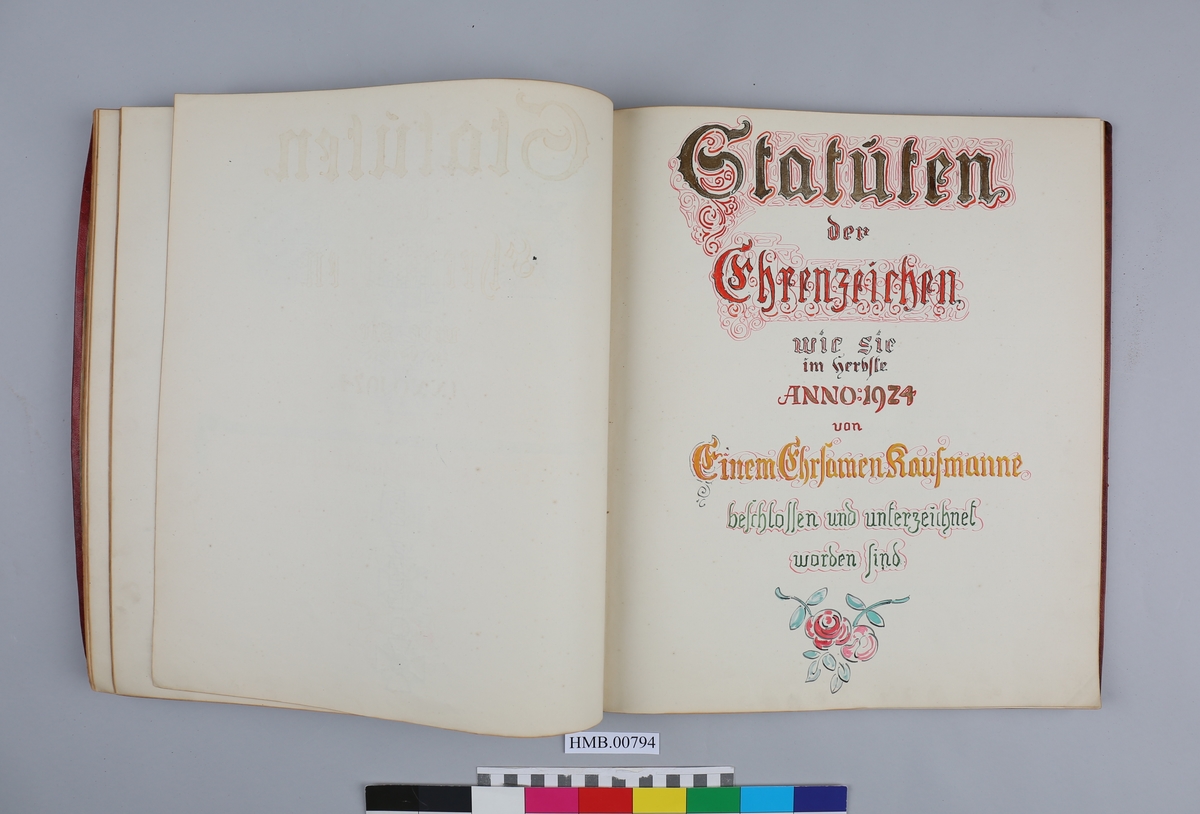 Statúten
der
Ehrenzeichen
wie sie
im Herbste
ANNO:1924
von
Einem Ehrsamen Kaufmanne
beschlossen und unterzeichnet
worden sind
HMB.00794